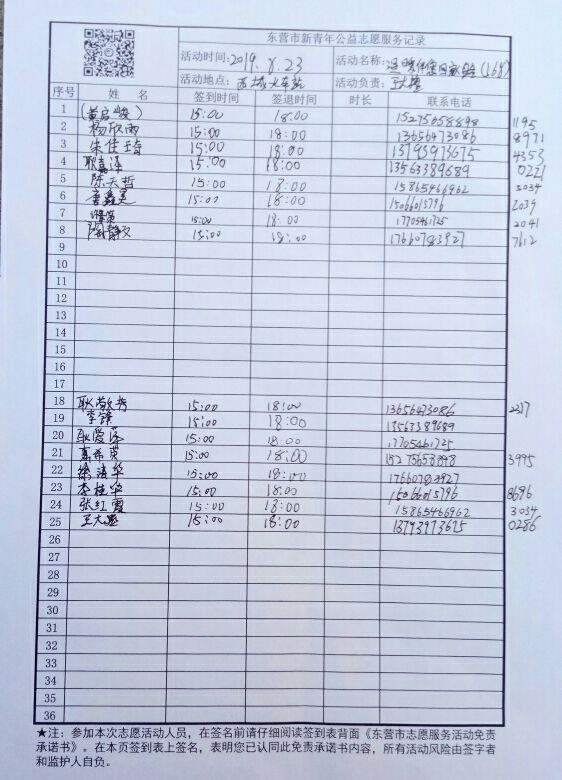 东营市新青年公益志愿服务记录
活动时间:2019.8.23 活动名称: (168)
活动地点: 西城火车站 活动负责:
序号 姓名 签到时间 签退时间 时长 联系电话
1 15:00 18:00 15275658898 1195
2 杨欣雨 15:00 18:00 13656473086 8971
3 朱佳琦 15:00 18:00 13793973675 4353
4 耿嘉泽 15:00 18:00 13563389689 0221
5 陈天哲 15:00 18:00 15865466962 3034
6 15:00 18:00 15066015796 2039
7 15:00 18:00 17705461725 2041
8 陶静文 15:00 18:00 17660783927 7612
9
10
11
12
13
14
15
16
17
18 15:00 18:00 13656473086
19 李锋 15:00 18:00 13563389689
20 15:00 18:00 17705461725
21 15:00 18:00 15275658898 3995
22 徐清华 15:00 18:00 17660783927
23 李桂华 15:00 18:00 15066015796 8696
24 张红霞 15:00 18:00 15865466962 3034
25 15:00 18:00 13793973675 0286
26
27
28
29
30
31
32
33
34
35
36
★注：参加本次志愿活动人员，在签名前请仔细阅读签到表背面《东营市志愿服务活动免责
承诺书》。在本页签到表上签名，表明您已认同此免责承诺书内容，所有活动风险由签字者
和监护人自负。